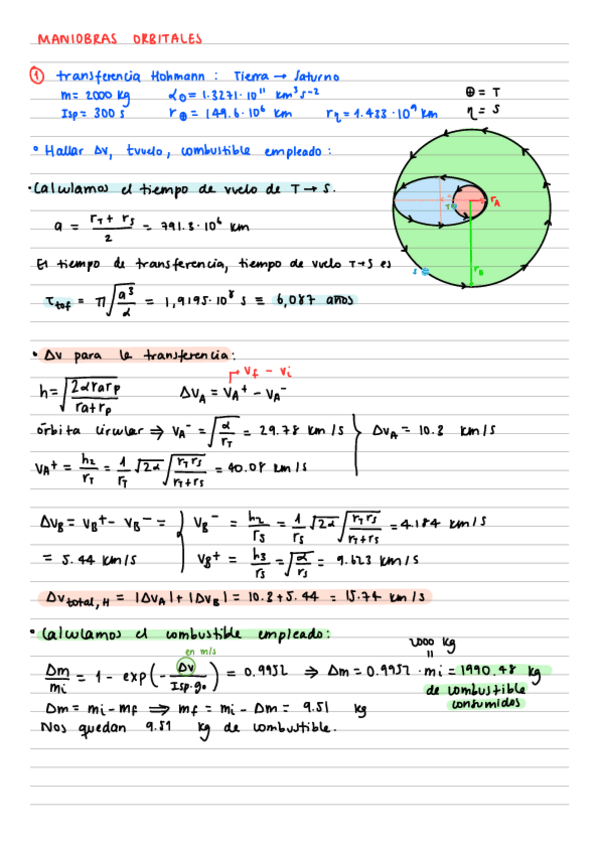 MANIOBRAS ORBITALES
① transferencia Hohmann : Tierra → Saturno
m = 2000 kg α⊙ = 1.3271·10¹¹ km³s⁻² ⊕ = T
Isp = 300 s r⊕ = 149.6·10⁶ km rη = 1.433·10⁹ km η = S
• Hallar Δv, tvuelo, combustible empleado :
• Calculamos el tiempo de vuelo de T → S.
a = (rT + rS)/2 = 791.3·10⁶ km
El tiempo de transferencia, tiempo de vuelo T→S es
τtof = π√(a³/α) = 1,9195·10⁸ s ≡ 6,087 años
T
rA
S
rB
• Δv para la transferencia :
→ vf − vi
h = √(2α rA rP/(rA + rP)) ΔvA = vA⁺ − vA⁻
órbita circular ⇒ vA⁻ = √(α/rT) = 29.78 km/s
ΔvA = 10.3 km/s
vA⁺ = h2/rT = 1/rT √2α √(rT rS/(rT + rS)) = 40.08 km/s
ΔvB = vB⁺ − vB⁻ =
vB⁻ = h2/rS = 1/rS √2α √(rT rS/(rT + rS)) = 4.184 km/s
= 5.44 km/s
vB⁺ = h3/rS = √(α/rS) = 9.623 km/s
Δvtotal, H = |ΔvA| + |ΔvB| = 10.3 + 5.44 = 15.74 km/s
• Calculamos el combustible empleado :
2000 kg
en m/s
Δm/mi = 1 − exp(−Δv/(Isp·g₀)) = 0.9952 ⇒ Δm = 0.9952 · mi = 1990.48 kg
de combustible
consumidos
Δm = mi − mf ⇒ mf = mi − Δm = 9.51 kg
Nos quedan 9.51 kg de combustible.